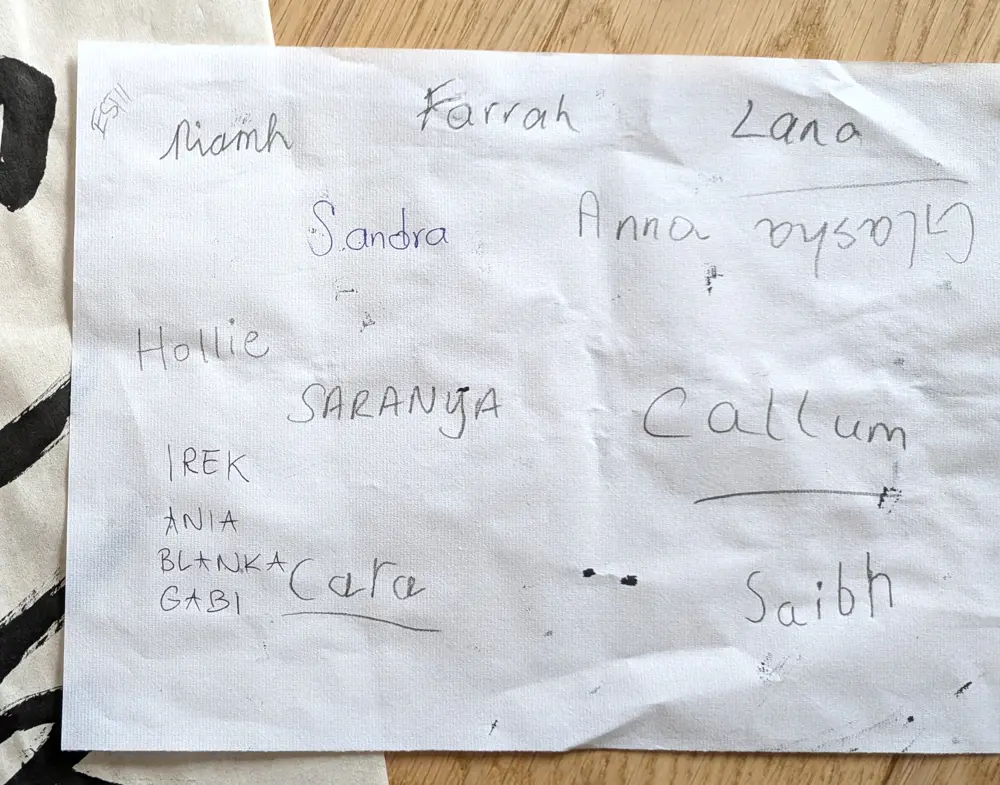 ESTI
Niamh
Farrah
Lana
Sandra
Anna
Glasha
Hollie
SARANYA
Callum
IREK
ANIA
BLANKA
GABI
Cara
Saibh